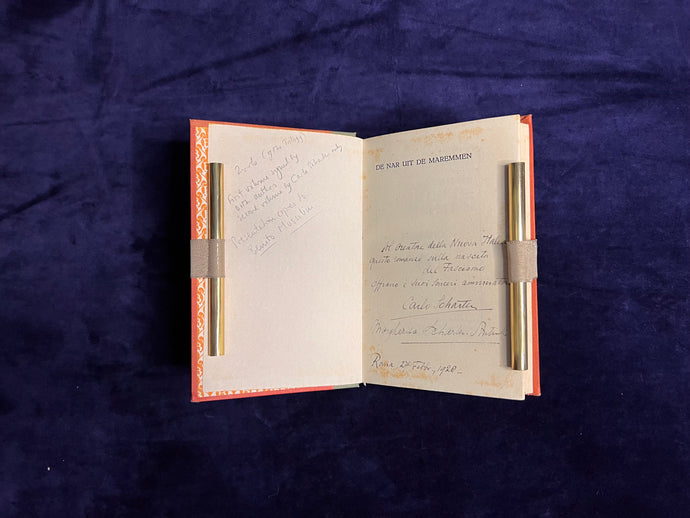 2 vols
First volume signed by
both authors
second volume by Carlo
Presentation copies to
Benito Mussolini
DE NAR UIT DE MAREMMEN
Al Creatore della Nuova Italia
questo romanzo sulla nascita
del Fascismo
offrono i suoi sinceri ammiratori
Carlo Scharten
Margherita Scharten
Roma, Febbr. 1928